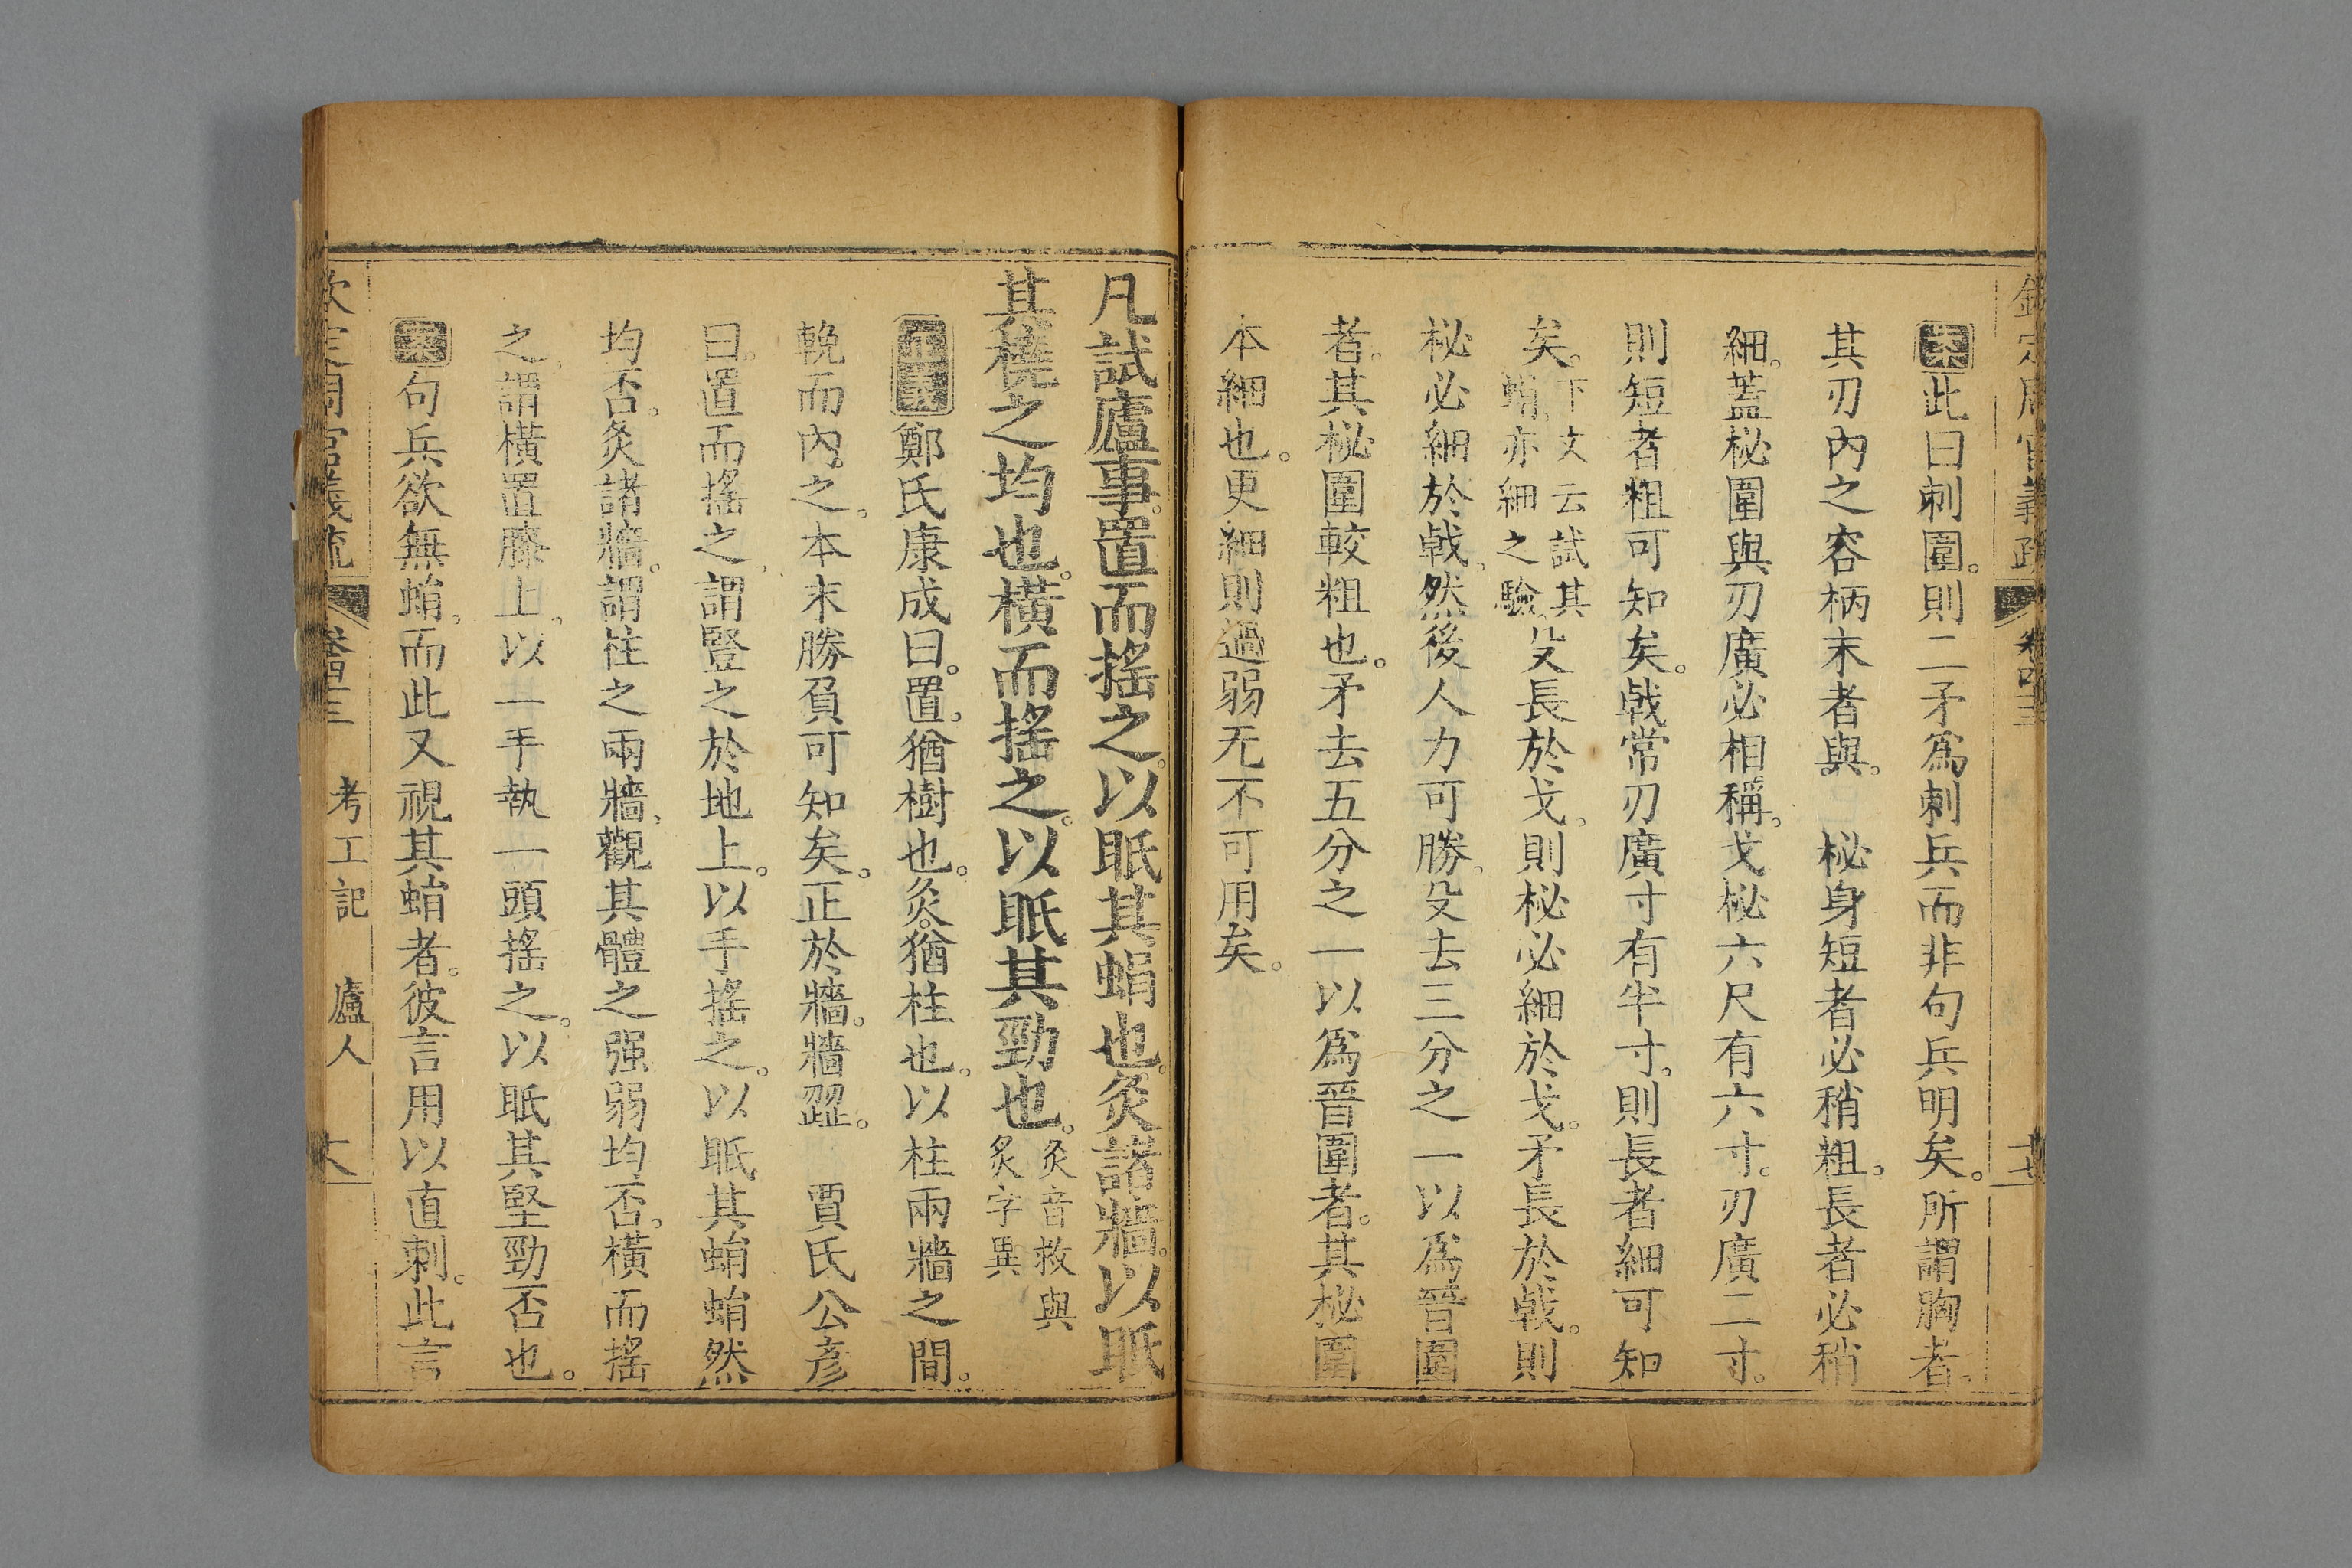 欽定周官義疏 卷四十三 十七
案此曰刺圍。則二矛爲刺兵而非句兵明矣。所謂胸者。
其刃內之容柄末者與。 柲身短者必稍粗。長者必稍
細。蓋柲圍與刃廣必相稱。戈柲六尺有六寸。刃廣二寸。
則短者粗可知矣。戟常刃廣寸有半寸。則長者細可知
矣。下文云試其蜎。亦細之驗。殳長於戈。則柲必細於戈。矛長於戟。則
柲必細於戟。然後人力可勝。殳去三分之一以爲晉圍
者。其柲圍較粗也。矛去五分之一以爲晉圍者。其柲圍
本細也。更細則過弱无不可用矣。
凡試廬事。置而搖之。以眡其蜎也。灸諸牆。以眡
其橈之均也。橫而搖之。以眡其勁也。灸音救與炙字異
鄭氏康成曰。置。猶樹也。灸。猶柱也。以柱兩牆之間。
輓而內之。本末勝負可知矣。正於牆。牆歰。 賈氏公彥
曰。置而搖之。謂豎之於地上。以手搖之。以眡其蛸蛸然
均否。灸諸牆。謂柱之兩牆。觀其體之强弱均否。橫而搖
之。謂橫置膝上。以一手執一頭搖之。以眡其堅勁否也。
案句兵欲無蛸。而此又視其蛸者。彼言用以直刺。此言
欽定周官義疏 卷四十三 考工記 廬人 十八